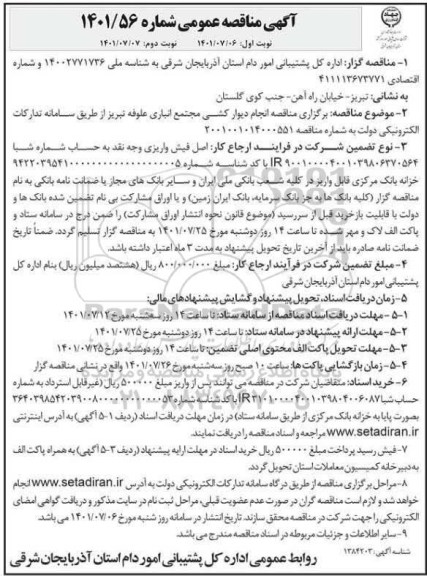 آگهی مناقصه عمومی شماره ۱۴۰۱/۵۶
نوبت اول: ۱۴۰۱/۰۷/۰۶ نوبت دوم: ۱۴۰۱/۰۷/۰۷
۱- مناقصه گزار: اداره کل پشتیبانی امور دام استان آذربایجان شرقی به شناسه ملی ۱۴۰۰۲۷۷۱۷۳۶ و شماره
اقتصادی ۴۱۱۱۱۳۶۷۳۷۷۱
به نشانی: تبریز-خیابان راه آهن- جنب کوی گلستان
۲- موضوع مناقصه: برگزاری مناقصه انجام دیوار کشی مجتمع انباری علوفه تبریز از طریق سامانه تدارکات
الکترونیکی دولت به شماره مناقصه ۲۰۰۱۰۰۱۰۱۴۰۰۰۵۵۱
۳- نوع تضمین شرکت در فرایند ارجاع کار: اصل فیش واریزی وجه نقد به حساب شماره شبا
با کد شناسه شماره
خزانه بانک مرکزی قابل واریز در کلیه شعب بانکی ملی ایران و سایر بانک های مجاز یا ضمانت نامه بانکی به نام
مناقصه گزار (کلیه بانک ها بجز بانک سرمایه، بانک ایران زمین) و یا اوراق مشارکت بی نام تضمین شده بانک ها و
دولت با قابلیت بازخرید قبل از سررسید (موضوع قانون نحوه انتشار اوراق مشارکت) را ضمن درج در سامانه ستاد و
پاکت الف لاک و مهر شده تا ساعت ۱۴ روز دوشنبه مورخ ۱۴۰۱/۰۷/۲۵ به مناقصه گزار تسلیم گردد. ضمناً تاریخ
ضمانت نامه صادره باید از آخرین تاریخ تحویل پیشنهاد به مدت ۳ ماه اعتبار داشته باشد.
۴- مبلغ تضمین شرکت در فرآیند ارجاع کار: مبلغ ۸۰۰/۰۰۰/۰۰۰ ریال (هشتصد میلیون ریال) بنام اداره کل
پشتیبانی امور دام استان آذربایجان شرقی
۵- زمان دریافت اسناد، تحویل پیشنهاد و گشایش پیشنهادهای مالی:
۵-۱- مهلت دریافت اسناد مناقصه از سامانه ستاد: تا ساعت ۱۴ روز سه شنبه مورخ ۱۴۰۱/۰۷/۱۲
۵-۲- مهلت ارائه پیشنهاد در سامانه ستاد: تا ساعت ۱۴ روز دوشنبه مورخ ۱۴۰۱/۰۷/۲۵
۵-۳- مهلت تحویل پاکت الف محتوی اصلی تضمین: تا ساعت ۱۴ روز دوشنبه مورخ ۱۴۰۱/۰۷/۲۵
۵-۴- زمان بازگشایی پاکت ها: ساعت ۱۰ صبح روز سه شنبه مورخ ۱۴۰۱/۰۷/۲۶ واقع در نشانی مناقصه گزار
۶- خرید اسناد: متقاضیان شرکت در مناقصه می توانند پس از واریز مبلغ ۵۰۰۰۰۰ ریال (غیرقابل استرداد به شماره
حساب شبا با کد شناسه شماره
بصورت پایا به خزانه بانک مرکزی از طریق سامانه ستاد) در زمان مهلت دریافت اسناد (ردیف ۱-۵ آگهی) به آدرس اینترنتی
www.setadiran.ir مراجعه و اسناد مناقصه را دریافت نمایند.
۷- فیش رسید پرداخت مبلغ ۵۰۰۰۰۰ ریال خرید اسناد در مهلت ارایه پیشنهاد (ردیف ۳-۵ آگهی) به همراه پاکت الف
به دبیرخانه کمیسیون معاملات استان تحویل گردد.
۸- مراحل برگزاری مناقصه از طریق درگاه سامانه تدارکات الکترونیکی دولت به آدرس www.setadiran.ir انجام
خواهد شد و لازم است مناقصه گران در صورت عدم عضویت قبلی، مراحل ثبت نام در سایت مذکور و دریافت گواهی امضای
الکترونیکی را جهت شرکت در مناقصه محقق سازند. تاریخ انتشار در سامانه روز شنبه مورخ ۱۴۰۱/۰۷/۰۶ می باشد.
۹- سایر اطلاعات و جزئیات مربوطه در اسناد مناقصه مندرج می باشد.
شناسه آگهی: ۱۳۸۴۲۰۳
روابط عمومی اداره کل پشتیبانی امور دام استان آذربایجان شرقی